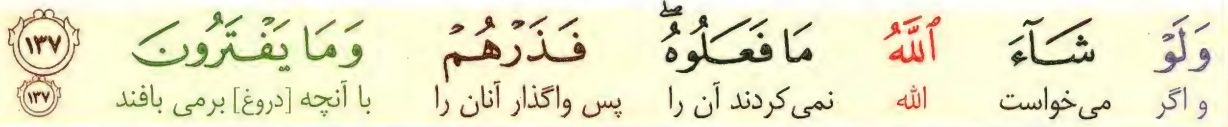 وَلَوْ شَآءَ ٱللَّهُ مَا فَعَلُوهُۖ فَذَرْهُمْ وَمَا يَفْتَرُونَ ١٣٧
و اگر می‌خواست الله نمی‌کردند آن را پس واگذار آنان را با آنچه [دروغ] برمی بافند ١٣٧